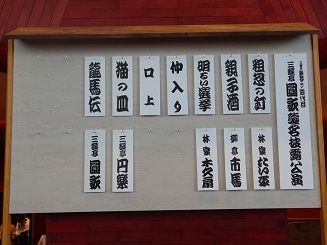 三遊亭圓歌襲名披露公演
粗忽の釘
林家たい平
親子酒
柳亭市馬
明るい選挙
林家木久扇
仲入り
口上
猫の皿
三遊亭円楽
龍馬伝
三遊亭圓歌